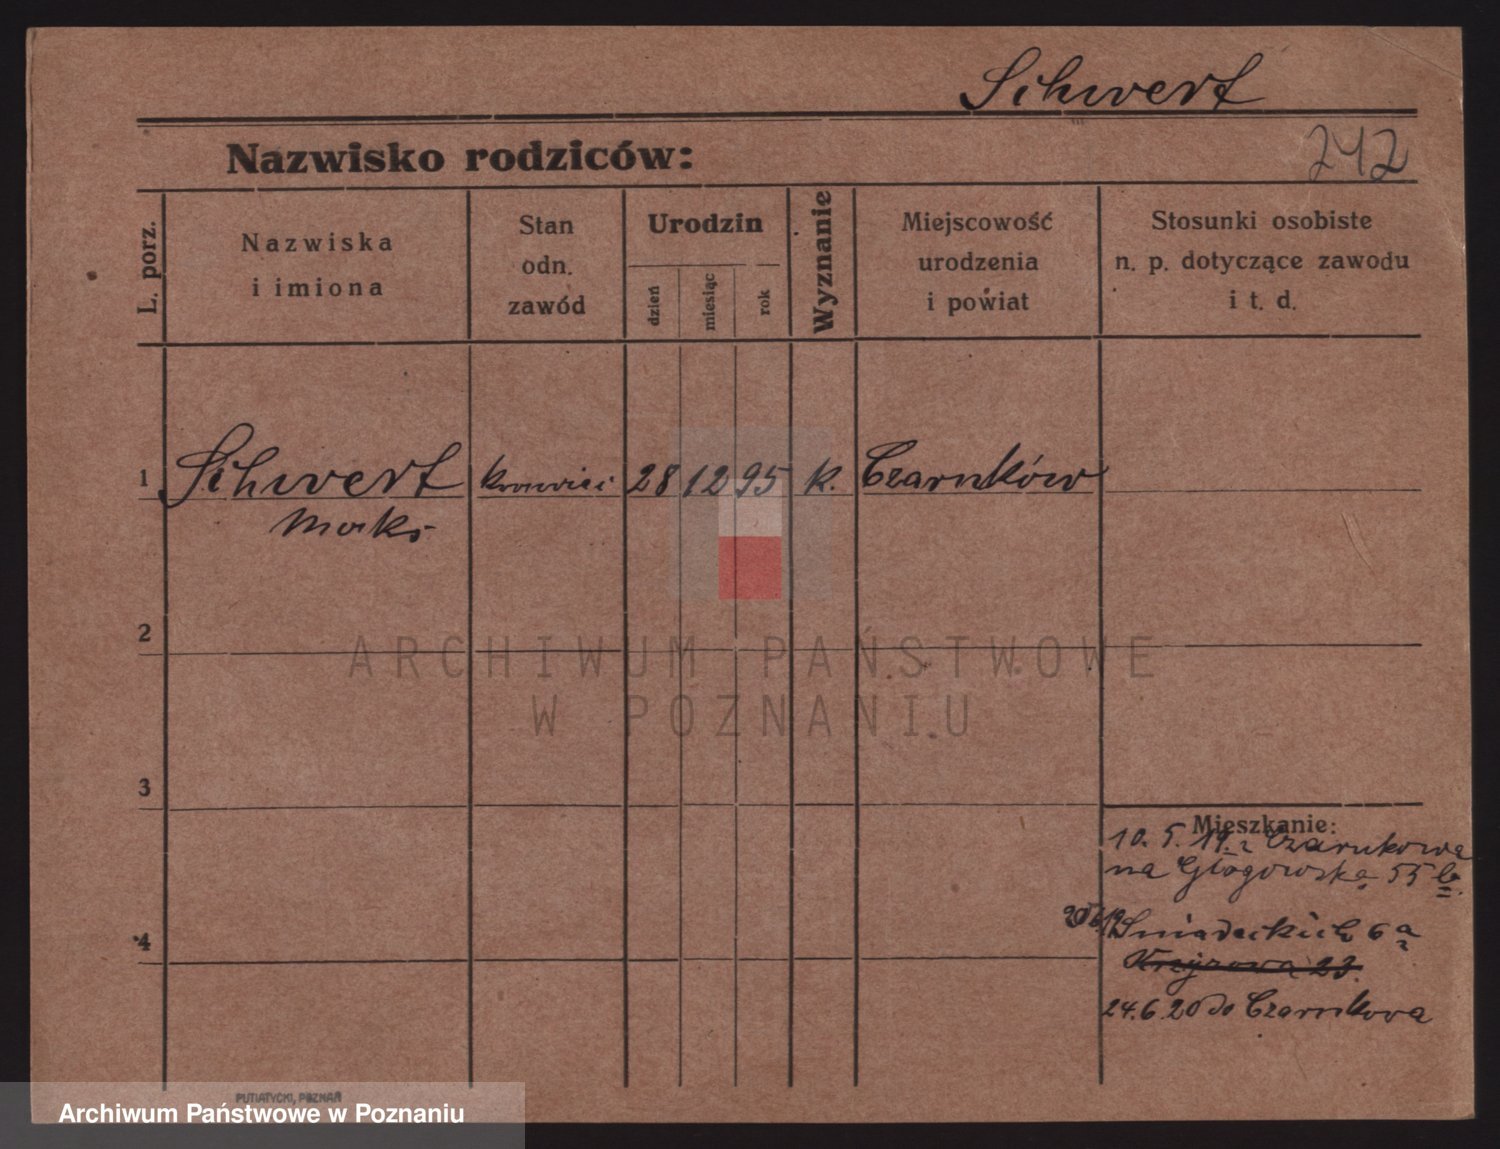 Schwert
Nazwisko rodziców:
242
L. porz.
Nazwiska
i imiona
Stan
odn.
zawód
Urodzin
dzień
miesiąc
rok
Wyznanie
Miejscowość
urodzenia
i powiat
Stosunki osobiste
n. p. dotyczące zawodu
i t. d.
1
Schwert
krawiec
28
12
95
k.
Czarnków
Maks
2
ARCHIWUM PAŃSTWOWE
W POZNANIU
3
Mieszkanie:
10. 5. 19. z Czarnkowa
na Głogowską 55 b.
4
Śniadeckich 6 a
Krzyżowa 23.
24.6.20 do Czarnkowa
PUTIATYCKI, POZNAŃ
Archiwum Państwowe w Poznaniu